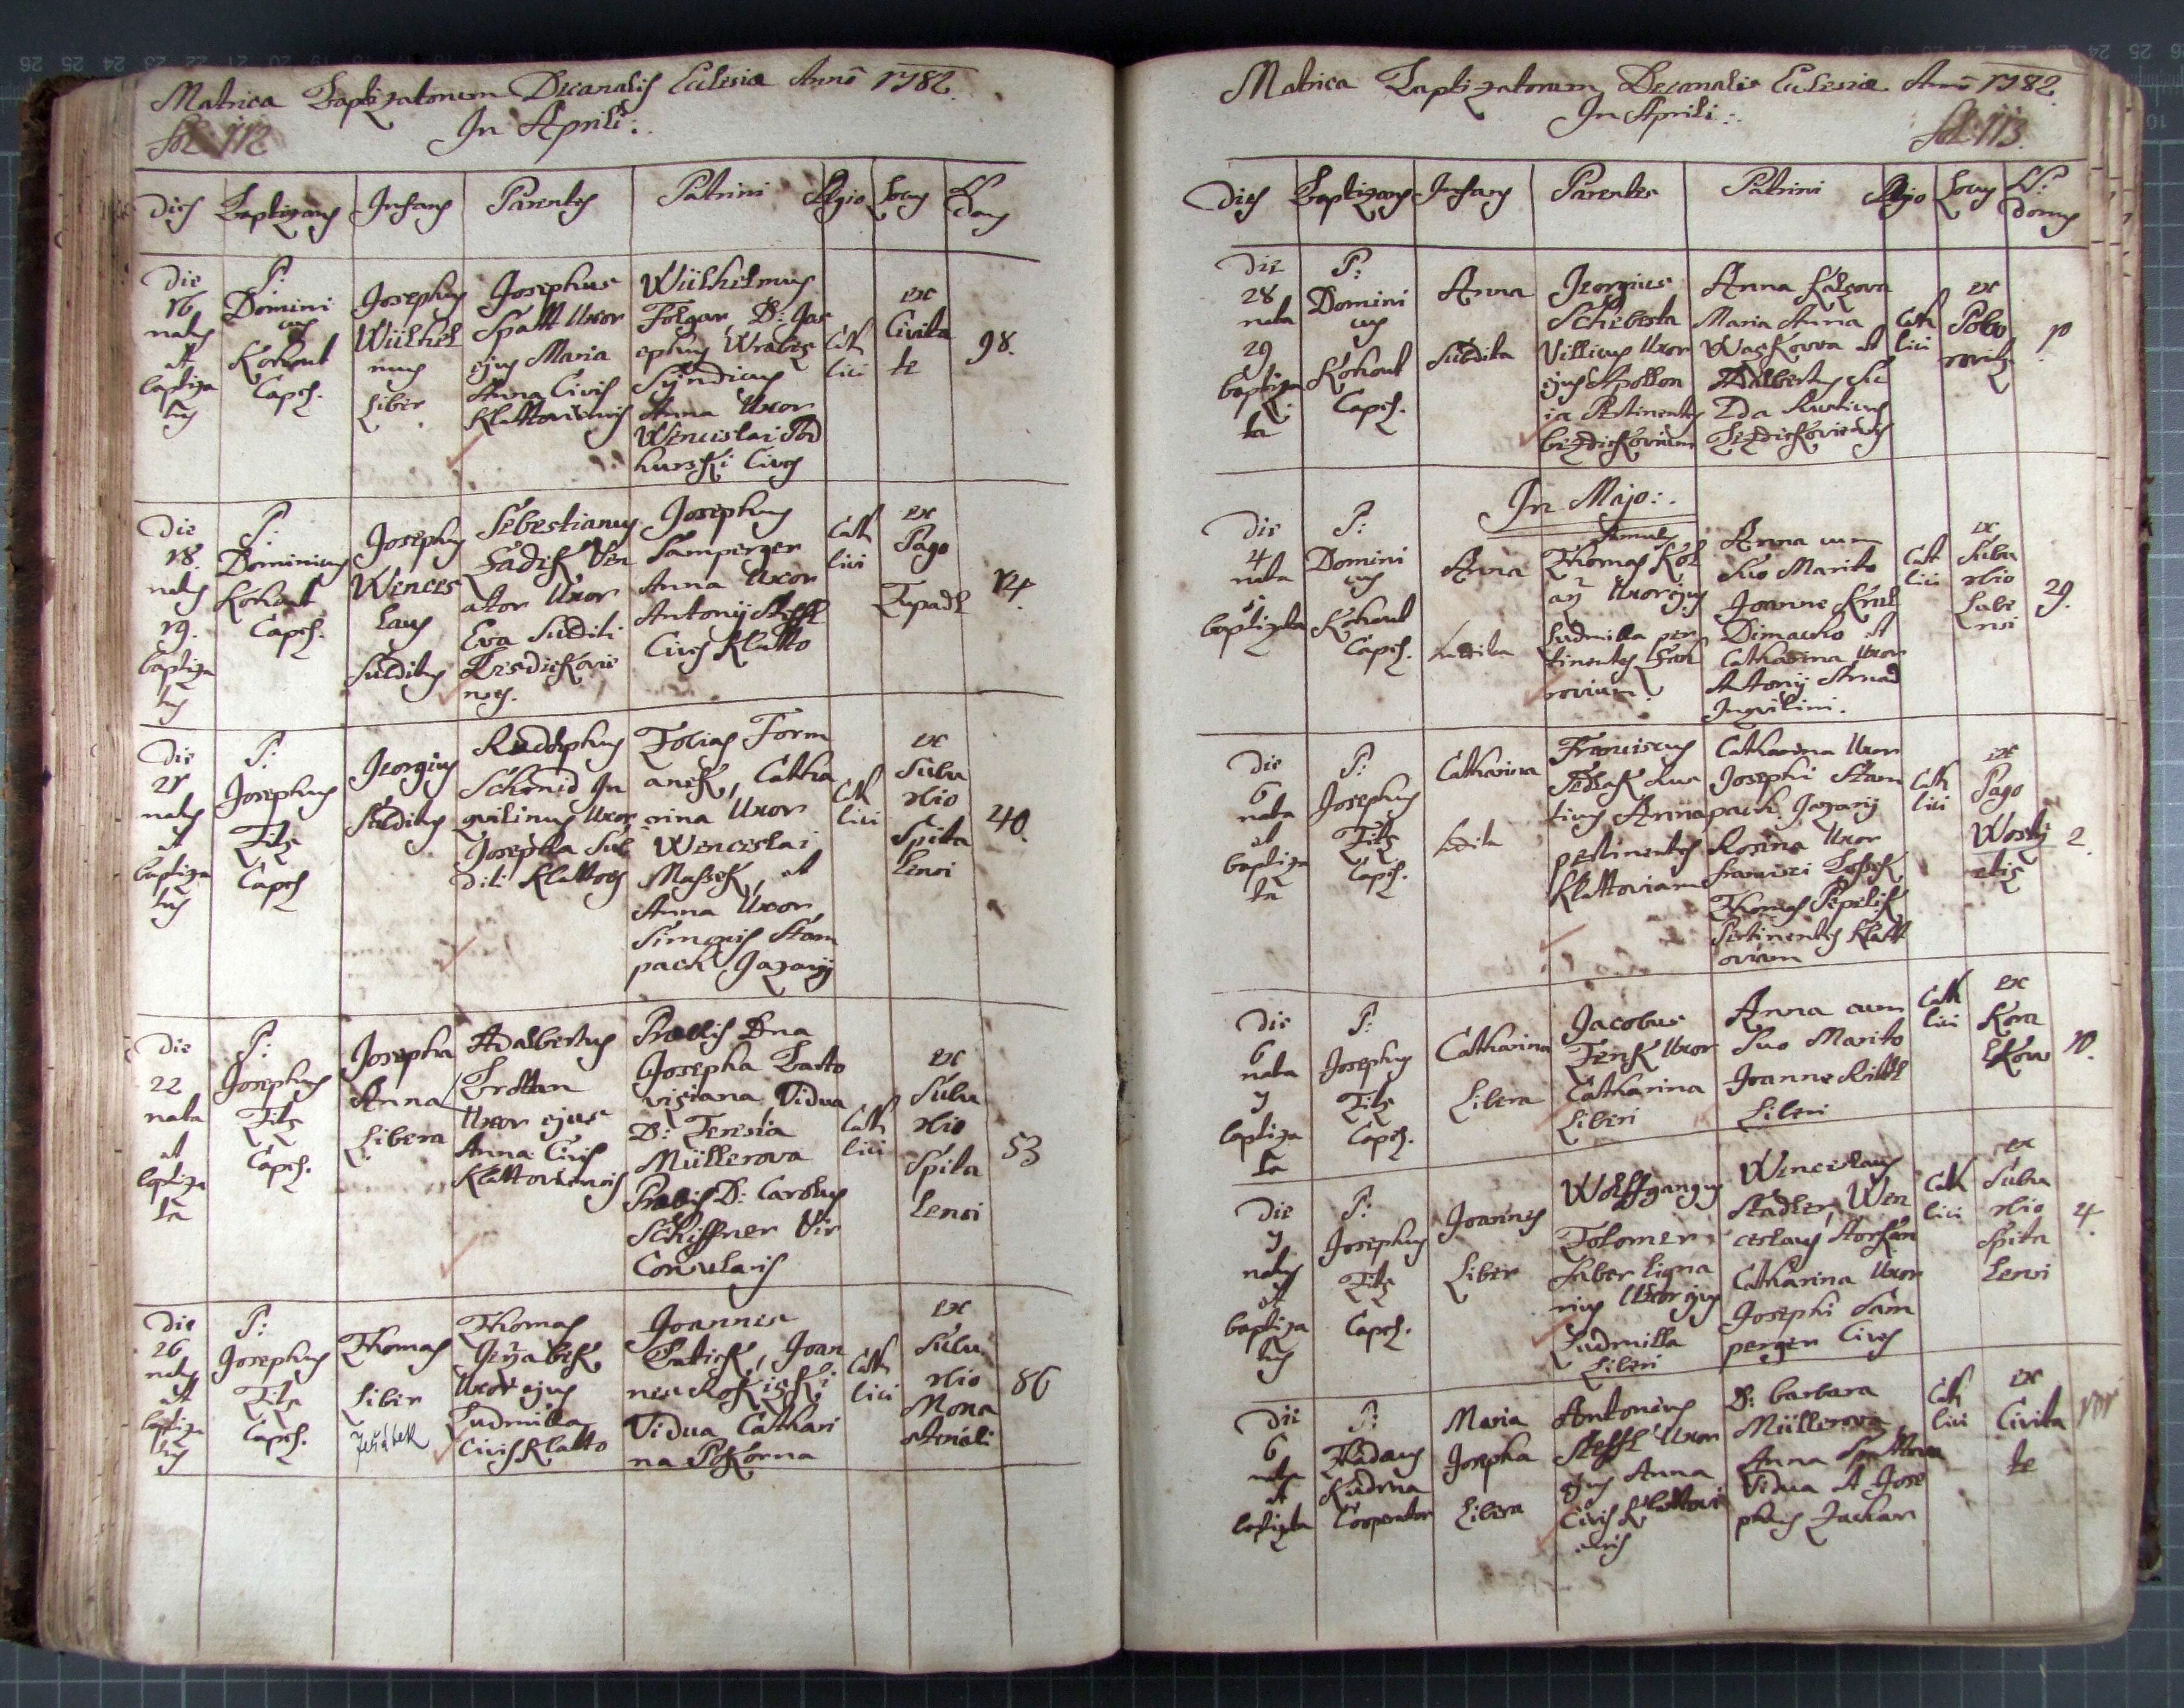 Matrica Baptizatorum Decanalis Ecclesiæ Anno 1782.
Fol. 112
In Aprili:.
Dies Baptizans Infans Parentes Patrini Religio Locus N: Domus
Die
16
natus
et
baptiza
tus
P:
Domini
cus
Kohout
Capel.
Josephus
Wülhel
mus
Liber
Josephus
Spatt Uxor
ejus Maria
Anna Civis
Klattoviensis
Wülhelmus
Folgar, D: Jos
ephus
Syndicus
Anna Uxor
Wenceslai Pod
hurski Cives
Cath
lici
ex
Civita
te
98.
Die
18.
natus
19.
baptiza
tus
P:
Dominicus
Kohout
Capel.
Josephus
Wences
laus
Subditus
Sebestianus
Sadik Ven
ator Uxor
Eva Subditi
Besdiekovie
nses.
Josephus
Samperger
Anna Uxor
Antonij Steffl
Cives Klatto
Cath
lici
ex
Pago
Tupadl
14.
Die
21
natus
et
baptiza
tus
P:
Josephus
Titz
Capel
Georgius
Subditus
Rudolphus
Schmid In
qvilinus Uxor
Josepha Sub
diti Klattoes
Tobias Form
anek, Catha
rina Uxor
Wenceslai
Massek, et
Anna Uxor
Simonis Stam
pach Jazarij
Cath
lici
ex
Subu
rbio
Spita
lensi
40.
Die
22
nata
et
baptiza
ta
P:
Josephus
Titz
Capel.
Josepha
Anna
Libera
Adalbertus
Uxor ejus
Anna Civis
Klattoviensis
Josepha
Vidua
D: Teresia
Müllerova
D: Carolus
Schiffner Vir
Consularis
Cath
lici
ex
Subu
rbio
Spita
lensi
53
Die
26
natus
et
baptiza
tus
P:
Josephus
Titz
Capel.
Thomas
Liber
Jeřábek
Thomas
Jeřabek
Uxor ejus
Ludmilla
Civis Klatto
Joannes
Joan
nes Rokizski
Vidua Cathari
na Pokorna
Cath
lici
ex
Subu
rbio
Mona
steriali
86
Matrica Baptizatorum Decanalis Ecclesiæ Anno 1782.
In Aprili:.
Fol. 113.
Dies Baptizans Infans Parentes Patrini Religio Locus N: domus
Die
28
nata
29
baptiza
ta
P:
Domini
cus
Kohout
Capel.
Anna
Subdita
Georgius
Schebesta
Villicus Uxor
ejus Apollon
ia Pertinentes
bezdiekovium
Anna
Maria Anna
Waskovva et
Adalbertus Su
Rusticus
Bezdiekovienses
Cath
lici
ex
1
In Majo:.
Die
4
nata
5
baptizata
P:
Domini
cus
Kohout
Capel.
Anna
Subdita
Famulus
Thomas Kol
arz Uxor ejus
Ludmilla per
tinentes
Anna cum
Suo Marito
Joanne Kral
Dimacho et
Catharina Uxor
Antonij Strnad
Inqvilini.
Cath
lici
ex
Subu
rbio
Labe
nsi
29.
Die
6
nata
et
baptiza
ta
P:
Josephus
Titz
Capel.
Catharina
Subdita
Franciscus
Sedlak Rus
ticus Anna
pertinentes
Klattoviam
Catharina Uxor
Josephi Stam
pach Jazarij
Rosina Uxor
Francisci
Thomas
Pertinentes Klatt
oviam
Cath
lici
ex
Pago
2.
Die
6
nata
7
baptiza
ta
P:
Josephus
Titz
Capel.
Catharina
Libera
Jacobus
Uxor
Catharina
Liberi
Anna cum
Suo Marito
Joanne
Liberi
Cath
lici
ex
Kora
lkow
10.
Die
7
natus
et
baptiza
tus
P:
Josephus
Titz
Capel.
Joannes
Liber
Wolffgangus
Tolomer
Faber ligna
rius Uxor ejus
Ludmilla
Liberi
Wenceslaus
Stadler, Wen
ceslaus
Catharina Uxor
Josephi Sam
perger Cives
Cath
lici
ex
Subu
rbio
Spita
lensi
4.
Die
6
nata
et
baptizata
P:
Thadæus
Kudrna
Cooperator
Maria
Josepha
Libera
Antonius
Steffl Uxor
ejus Anna
Civis Klattovi
ensis
D: barbara
Müllerova
Anna
Vidua et Jose
phus Zachar
Cath
lici
ex
Civita
te
101